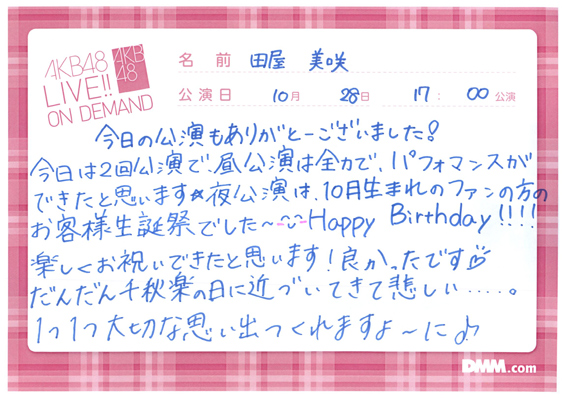 AKB48
LIVE!!
ON DEMAND
AKB
48
名前 田屋 美咲
公演日 10月 28日 17:00公演
今日の公演もありがとーございました!
今日は2回公演で、昼公演は全力で、パフォマンスが
できたと思います☆夜公演は、10月生まれのファンの方の
お客様生誕祭でした〜Happy Birthday!!!!
楽しくお祝いできたと思います!良かったです♡
だんだん千秋楽の日に近づいてきて悲しい....。
1つ1つ大切な思い出つくれますよ〜に♪
DMM.com